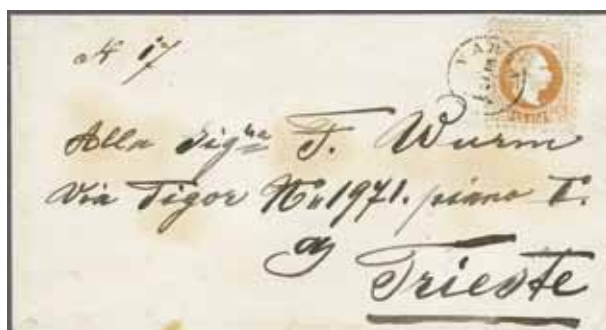 N 17
Alla Sigra F. Wurm
Via Tigor No 1971. piano I.
Trieste